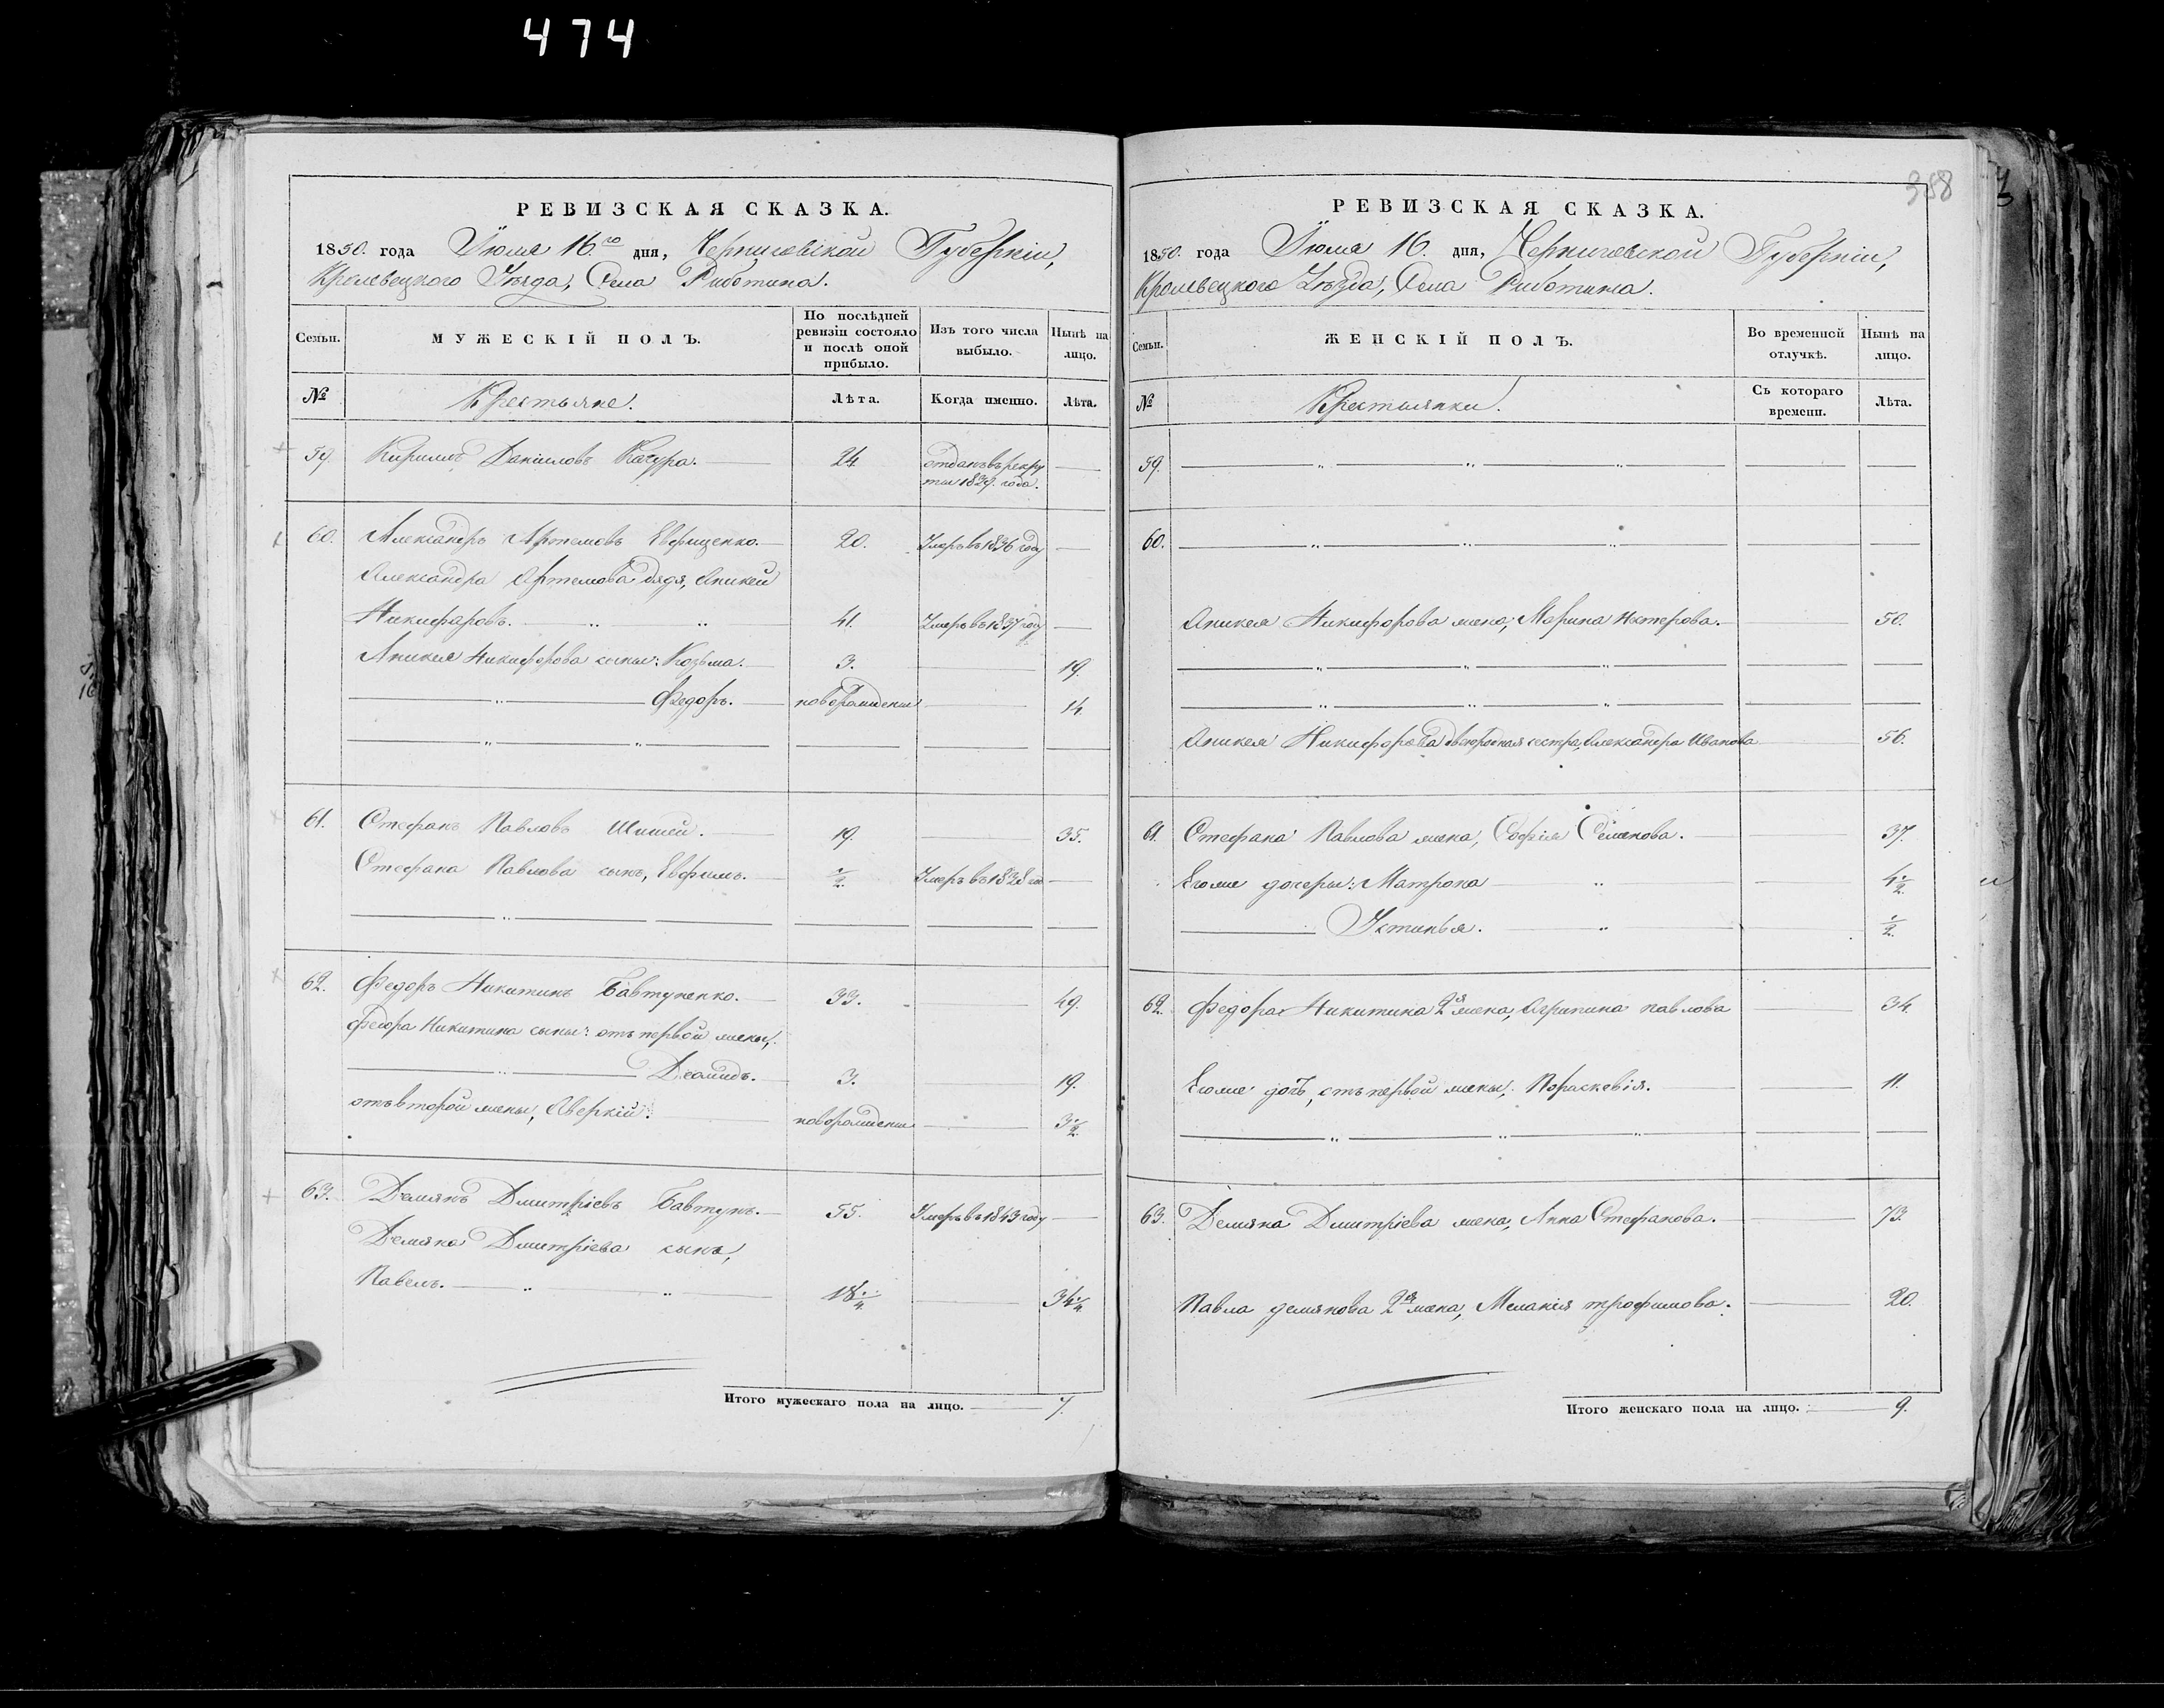 474
РЕВИЗСКАЯ СКАЗКА.
1850. года Іюля 16го дня, Черниговской Губерніи,
Кролевецкого Уезда, Села Риботина.
Семьи. МУЖЕСКІЙ ПОЛЪ. По послѣдней ревизіи состояло и послѣ оной прибыло. Изъ того числа выбыло. Нынѣ на лицо.
№ Крестьяне. Лѣта. Когда именно. Лѣта.
59. Кирилъ Даниловъ Качура. 24. отданъ въ рекру
ты 1839. года.
60. Александръ Артемовъ 20. Умеръ въ 1836 году
Александра Артемова дядя, Аникей
Никифоровъ. 41. Умеръ въ 1837 году
Аникея Никифорова сыны: Козьма. 3. 19.
Федоръ. новорожденый 14.
61. Стефанъ Павловъ Шишей. 19. 35.
Стефана Павлова сынъ, Евфимъ. ½ Умеръ въ 1838 го
62. Федоръ Никитинъ Бавтуненко. 33. 49.
Федора Никитина сыны: отъ первой жены,
Деомидъ. 3. 19.
отъ второй жены, Аверкій. новорожденый 3½
63. Демянъ Дмитріевъ Бавтунъ. 55. Умеръ въ 1843 году
Демяна Дмитріева сынъ,
Павелъ. 18¼ 34¼
Итого мужескаго пола на лицо. 7.
358
РЕВИЗСКАЯ СКАЗКА.
1850. года Іюля 16. дня, Черниговской Губерніи,
Кролевецкого Уѣзда, Села Риботина.
Семьи. ЖЕНСКІЙ ПОЛЪ. Во временной отлучкѣ. Нынѣ на лицо.
№ Крестьянки. Съ котораго времени. Лѣта.
59.
60.
Аникея Никифорова жена, Марина Нестерова. 50.
Аникея Никифорова двоюродная сестра, Александра Иванова 56.
61. Стефана Павлова жена, Софія Семенова. 37.
Егоже дочеры: Матрона 4½
Устинья. ½
62. Федора Никитина 2я жена, Агрипина павлова 34.
Егоже дочь, отъ первой жены, Параскевія. 11.
63. Демяна Дмитріева жена, Анна Стефанова. 73.
Павла демянова 2я жена, Меланія трофимова. 20.
Итого женскаго пола на лицо. 9.